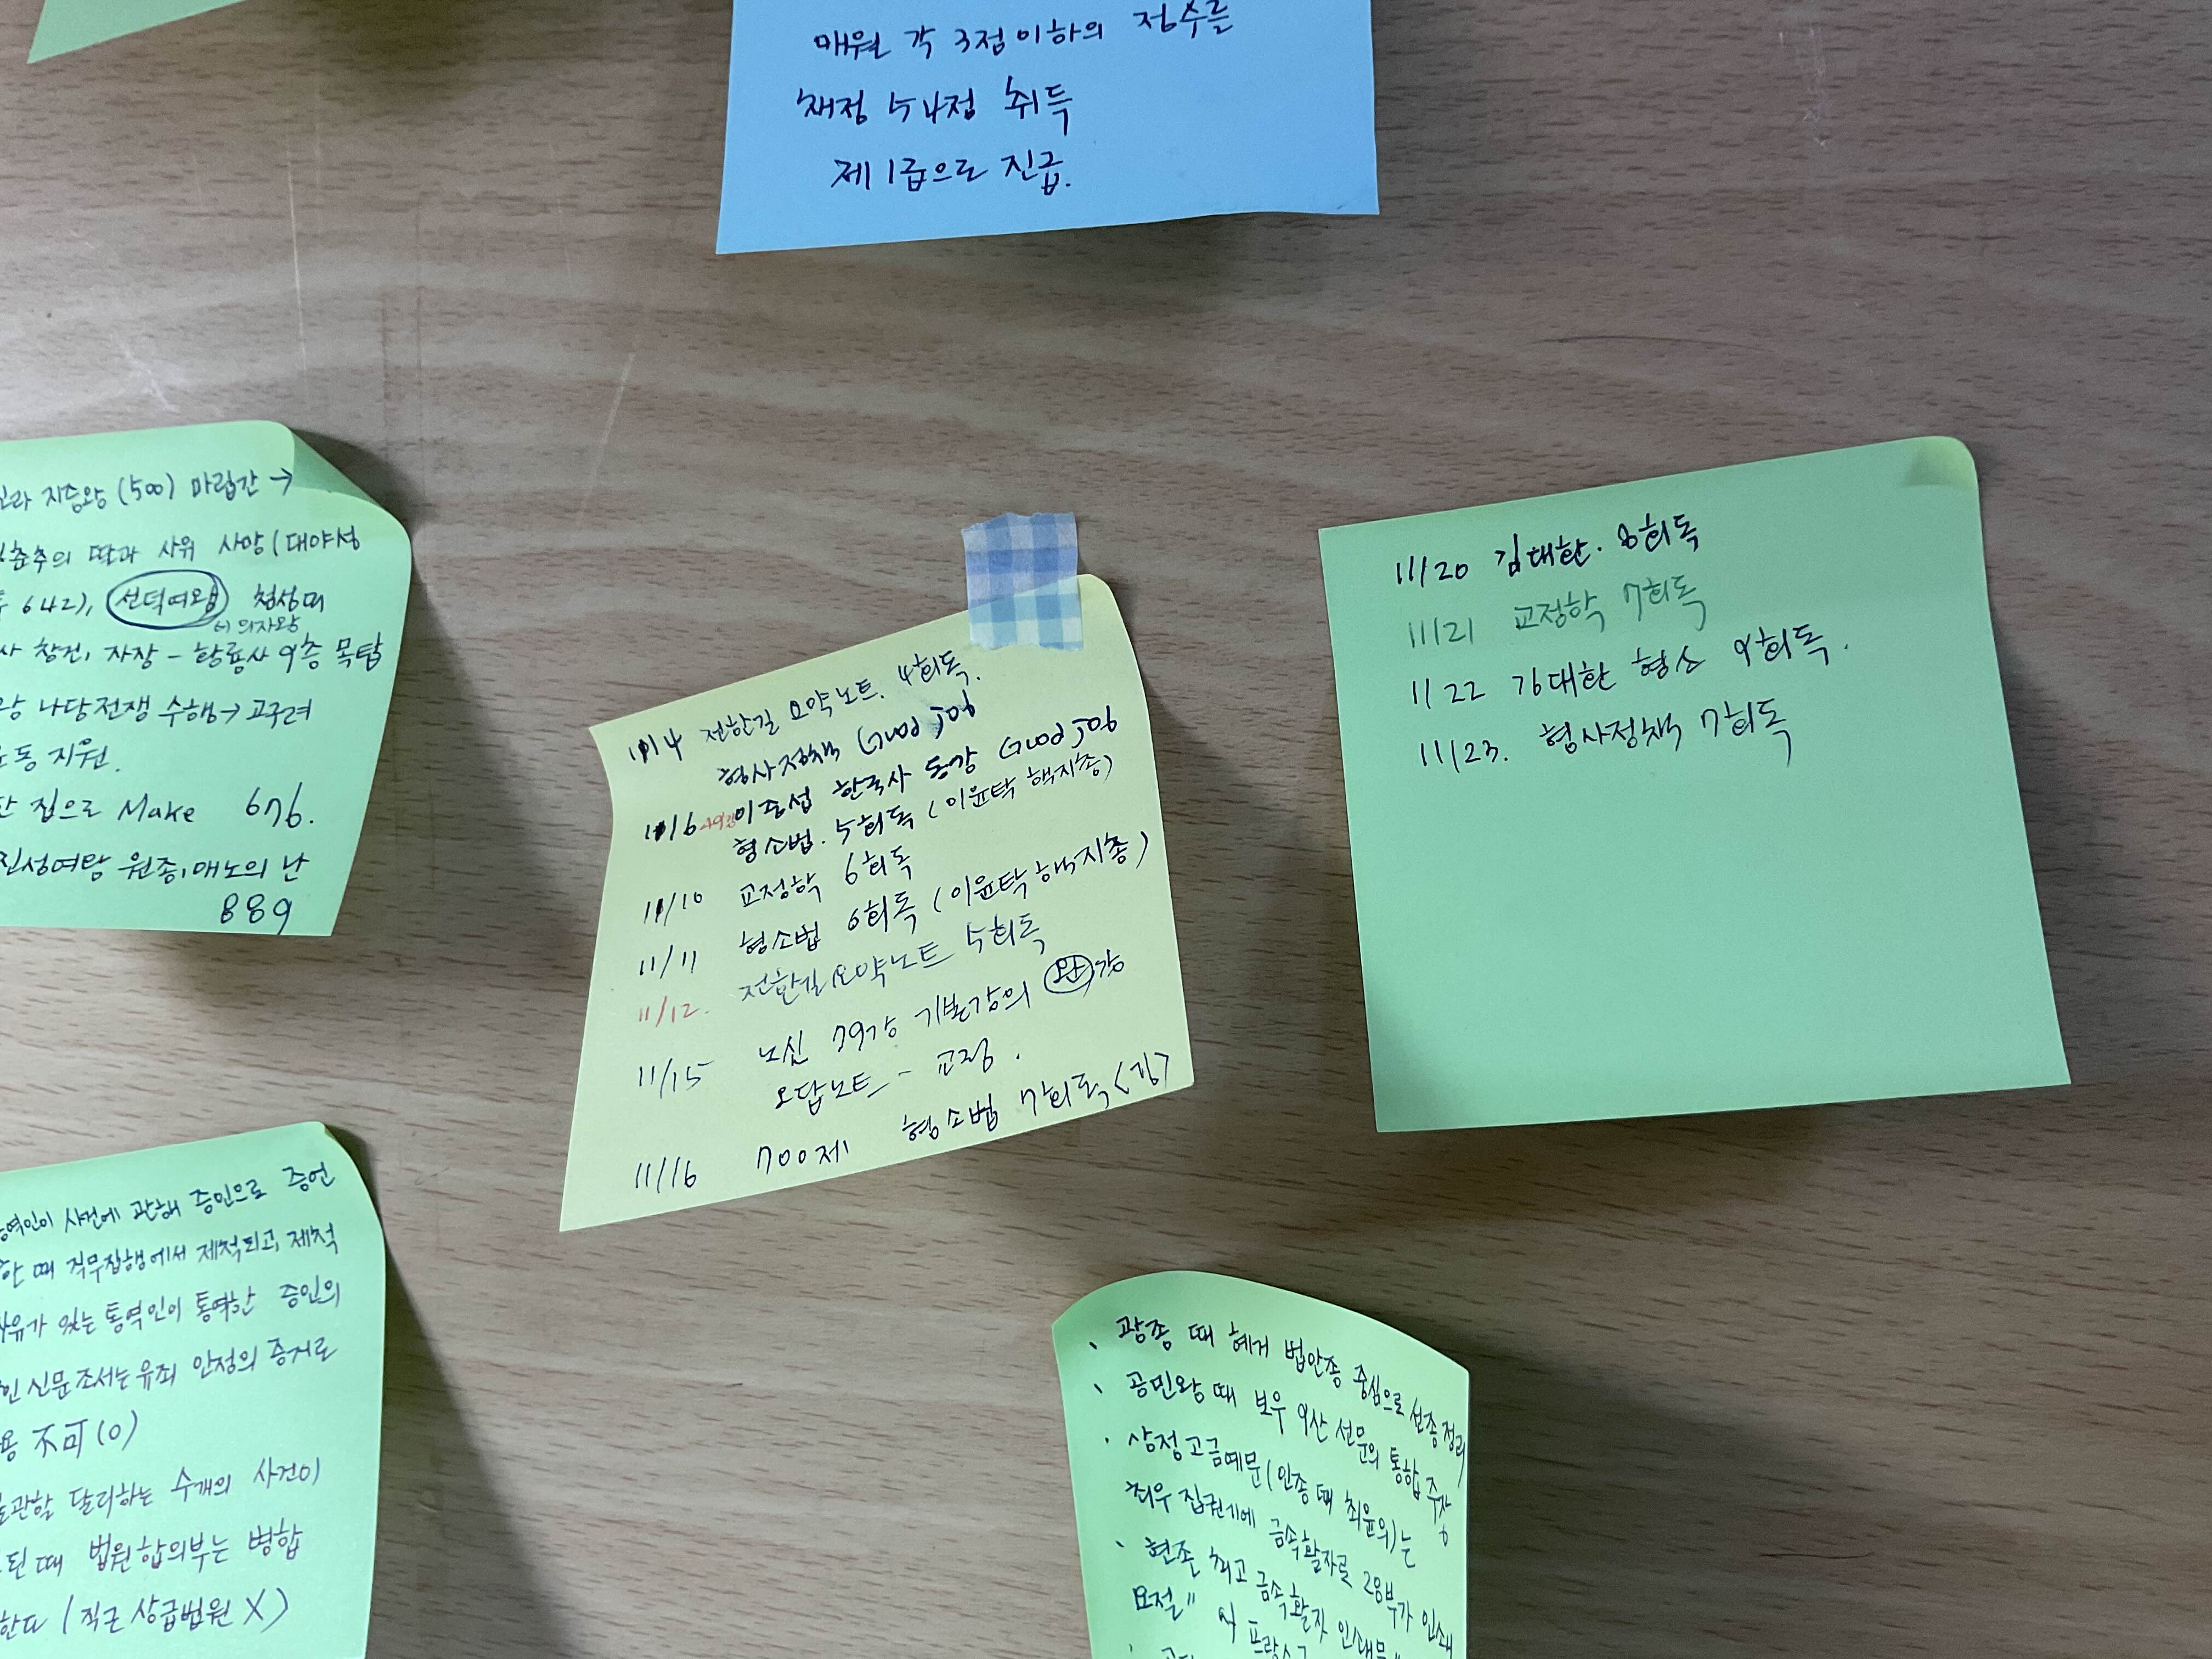 매월 각 3점이하의 점수를
채점 54점 취득
제1급으로 진급.
지증왕 (500) 마립간 →
춘추의 딸과 사위 사망 (대야성
642), 선덕여왕 첨성대
의자왕
창건, 자장 - 황룡사 9층 목탑
나당전쟁 수행 → 고구려
운동 지원.
집으로 Make 676.
진성여왕 원종, 애노의 난
889
11/4 전한길 요약노트. 4회독.
형사정책 Good job
11/6 이중섭 한국사 동강 Good job
형소법. 5회독 (이윤탁 핵지총)
11/10 교정학 6회독
11/11 형소법 6회독 (이윤탁 핵지총)
11/12. 전한길 요약노트 5회독
11/15 노신 79강 기본강의 완강
오답노트 - 교정.
11/16 700제 형소법 7회독 <김>
11/20 김대한. 8회독
11/21 교정학 7회독
11 22 김대한 형소 9회독.
11/23. 형사정책 7회독
통역인이 사건에 관해 증인으로 증언
한 때 직무집행에서 제척되고, 제척
사유가 있는 통역인이 통역한 증인의
신문조서는 유죄 인정의 증거로
不可 (O)
관할 달리하는 수개의 사건이
된 때 법원합의부는 병합
한다 (직근 상급법원 X)
、 광종 때 혜거 법안종 중심으로 선종정리
、 공민왕 때 보우 9산 선문의 통합 주장
· 상정고금예문 (인종 때 최윤의)는
최우 집권기에 금속활자로 28부가 인쇄
、 현존 최고 금속활자 인쇄물"
요절"